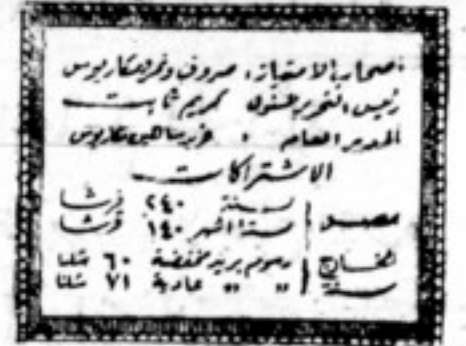 أصحاب الامتياز: صروف ونمر ومكاريوس
رئيس التحرير المسئول كريم ثابت
المدير العام : عزيز شاهين مكاريوس
الاشتراكات
مصر | سنة ٢٤٠ قرشا
ستة اشهر ١٤٠ قرشا
الخارج | رسوم بريد مخفضة ٦٠ شلنا
سنة | „ „ عادية ٧١ شلنا